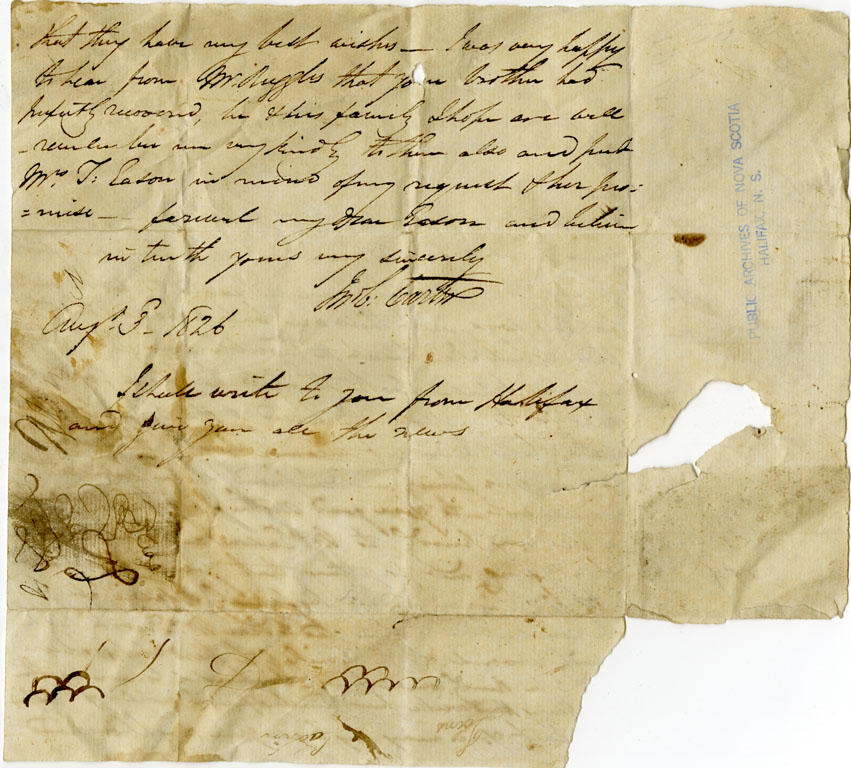 that they have my best wishes — I was very happy
to hear from Mr Ruggles that your brother had
perfectly recovered, he & his family I hope are well
- remember me very kindly to them also and put
Mrs T: Eason in mind of my request & her pro=
=mise — farewel my Dear Eason and believe
in truth yours very sincerely
Augt 3 - 1826
I shall write to you from Halifax
and give you all the news
PUBLIC ARCHIVES OF NOVA SCOTIA
HALIFAX, N. S.